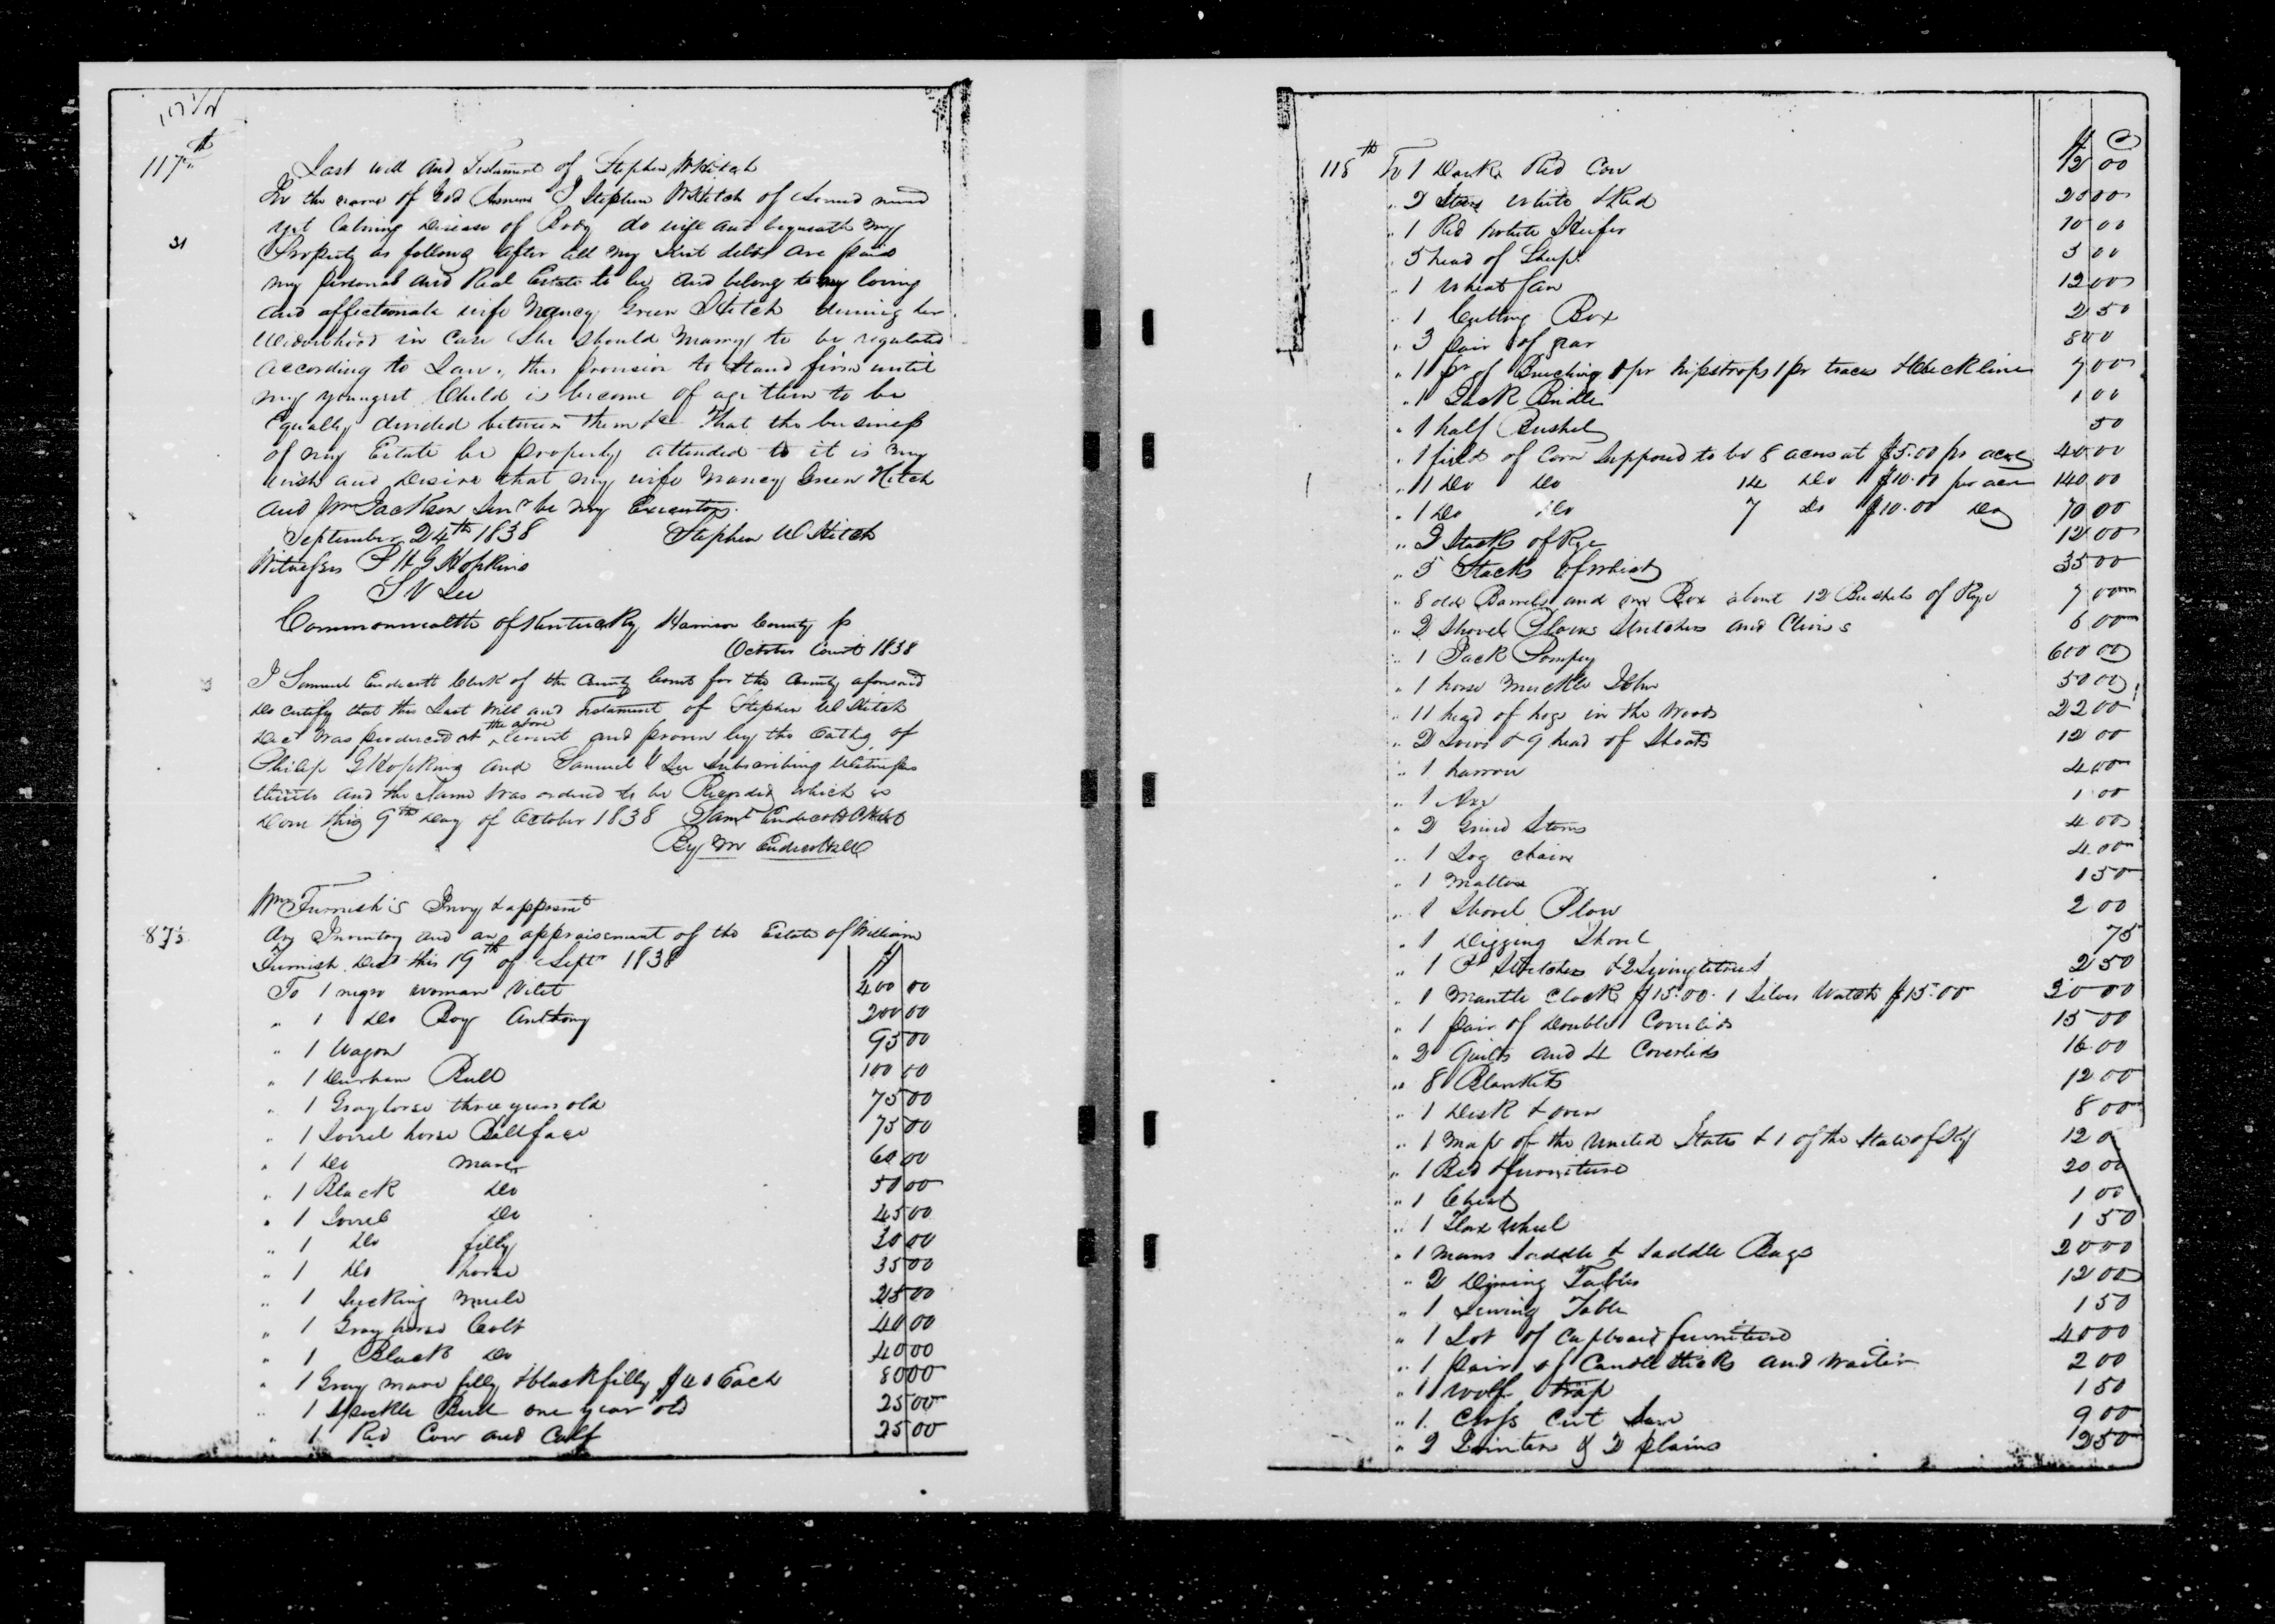 117th
Last will and Testament of Stephen W Hitch
In the name of God Amen I Stephen W Hitch of Sound mind
31
yet Laboring Disease of Body do will and bequeath my
Property as follows after all my Just debts are paid
my personal and Real Estate to be and belong to my loving
and affectionate wife Nancy Green Hitch during her
Widowhood in Case She Should Marry to be regulated
according to Law, this provision to Stand firm until
my youngest Child is become of age then to be
Equally divided between them &c That the business
of my Estate be properly attended to it is my
wish and Desire that my wife Nancy Green Hitch
and Jackson Senr be my Executors.
September 24th 1838 Stephen W Hitch
Witnesses P H G Hopkins
S V Lee
Commonwealth of Kentucky Harrison County
October Court 1838
I Samuel Endicott Clerk of the County Court for the County aforesaid
Do Certify that this Last Will and Testament of Stephen W Hitch
Decd was produced at the above Court and proven by the Oaths of
Philip G Hopkins and Samuel V Lee Subscribing Witnesses
thereto and the Same was ordered to be Recorded which is
Done this 9th Day of October 1838 Saml Endicott
By M Endicott
Wm Furnish's Invy & appment
87½
An Inventory and an appraisement of the Estate of William
Furnish Decd this 19th of Sept 1838 $
To 1 negro woman Vilet 400 00
" 1 Do Boy Anthony 200 00
" 1 Wagon 95 00
" 1 Durham Bull 100 00
" 1 Gray horse three years old 75 00
" 1 Sorrel horse Ballface 75 00
" 1 Do Mare 60 00
" 1 Black Do 50 00
" 1 Sorrel Do 45 00
" 1 Do filly 30 00
" 1 Do horse 35 00
" 1 Sucking Mule 25 00
" 1 Gray horse Colt 40 00
" 1 Black Do 40 00
" 1 Gray mare filly & black filly $40 Each 80 00
" 1 Speckle Bull one year old 25 00
" 1 Red Cow and Calf 25 00
118th $ C
To 1 Dark Red Cow 12 00
" 2 Steers White & Red 20 00
" 1 Red White Heifer 10 00
" 5 head of Sheep 5 00
" 1 Wheat fan 12 00
" 1 Cutting Box 2 50
" 3 pair of gear 8 00
" 1 pr of Briching 1 pr hipstraps 1 pr traces & Checkline 7 00
" 1 Jack Bridle 1 00
" 1 half Bushel 50
" 1 field of Corn Supposed to be 8 acres at $5.00 pr acre 40 00
" 1 Do Do 14 Do $10.00 per acre 140 00
" 1 Do Do 7 Do $10.00 Do 70 00
" 2 Stacks of Rye 12 00
" 5 Stacks of Wheat 35 00
" 8 old Barrels and one Box about 12 Bushels of Rye 7 00
" 2 Shovel Plows Stretchers and Clivis 6 00
" 1 Jack Pompey 600 00
" 1 horse Muckle John 50 00
" 11 head of hogs in the Woods 22 00
" 2 Sows & 9 head of Shoats 12 00
" 1 harrow 4 00
" 1 Axe 1 00
" 2 Grind Stones 4 00
" 1 Log chain 4 00
" 1 Mattox 1 50
" 1 Shovel Plow 2 00
" 1 Digging Shovel 75
" 1 Stretcher & 2 Singletrees 2 50
" 1 Mantle Clock $15.00. 1 Silver Watch $15.00 30 00
" 1 pair of Double Coverlids 15 00
" 2 Quilts and 4 Coverlids 16 00
" 8 Blankets 12 00
" 1 Desk & oven 8 00
" 1 Map of the United States & 1 of the State of Ky 12 0
" 1 Bed & furniture 20 00
" 1 Chest 1 00
" 1 Flax Wheel 1 50
" 1 Mans Saddle & Saddle Bags 20 00
" 2 Dining Tables 12 00
" 1 Sewing Table 1 50
" 1 Lot of Cupboard furniture 40 00
" 1 pair of Candlesticks and waiter 2 00
" 1 Wolf trap 1 50
" 1 Cross Cut Saw 9 00
" 2 Jointers & 2 plains 2 50